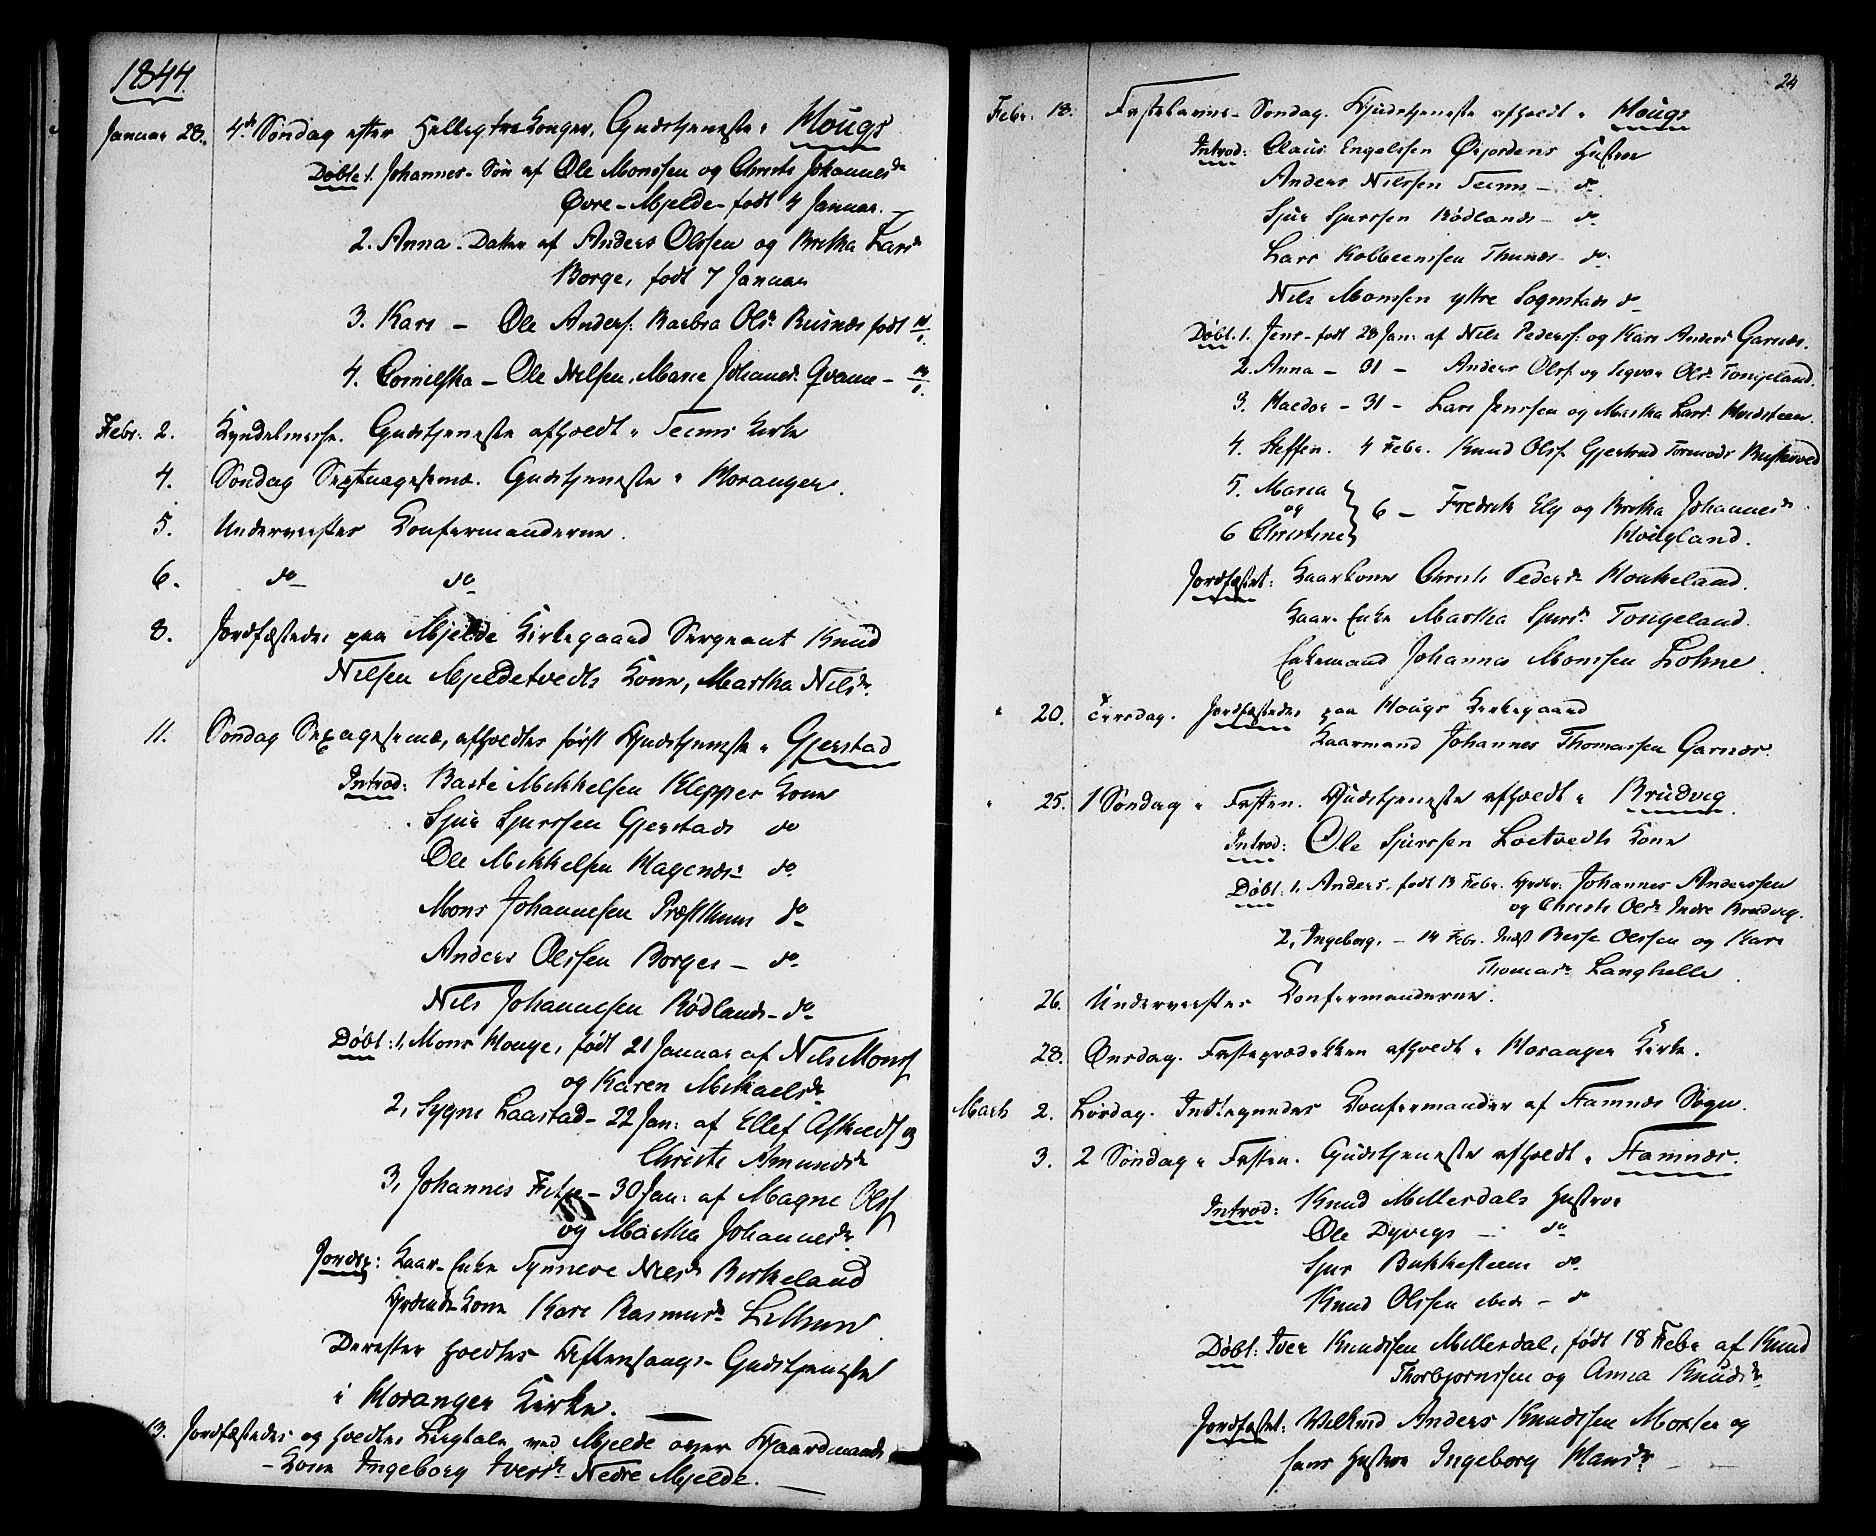 1844.
Januar 28. 4de Søndag efter Hellig tre Konger, Gudstjeneste i Hougs
Døbte 1. Johannes - Søn af Ole Monssen og Christi Johannesdr
Øvre-Mjelde - født 4 Januar. -
2. Anna - Datter af Anders Olssen og Britha Larsdr
Borge, født 7 Januar
3. Kari - Ole Anders: Barbra Olsdr født
4. Ole Nilsen, Marie Johannesdr - 
Febr: 2. Kyndelmesse. Gudstjeneste afholdt i Kirke
4. Søndag Septuagesima. Gudstjeneste i Hosanger.
5. Underviistes Confirmanderne.
6. do do
8. Jordfæstedes paa Mjelde Kirkegaard Sergeant Knud
Nilsen Mjeldetvedts Kone, Martha Nilsdr.
11. Søndag Sexagesima, afholdtes først Gudstjeneste i Gjerstad
Introd: Baste Mikkelsen Kleppes Kone
Sjur Sjurssen Gjerstads do
Ole Mikkelsen Hagenæs do
Mons Johannesen Præsthuus do
Anders Olssen Borges - do
Nils Johannesen Rødlands - do
Døbt: 1, Mons Houge, født 21 Januar af Nils Monss
og Karen Mikaelsdr
2, Sygni Laastad - 22 Jan: af Ellef og
Christi Amundsdr
3, Johannes - 30 Jan: af Magne Olss
og Martha Johannesdr.
Jordf: Kaar-Enke Synneve Nilsdr Birkeland
Kone Kari Rasmusdr
Derefter holdtes Aftensangs-Gudstjeneste
i Hosanger Kirke.
13. Jordfæstedes og holdtes Liigtale ved Mjelde over Gaardmands
- Kone Ingeborg Iversdr Nedre Mjelde.
24
Febr. 18. Fastelavns-Søndag. Gudstjeneste afholdt i Hougs
Introd: Claus Engelssen Øijordens Hustru
Anders Nilssen - do
Sjur Sjurssen Rødlands - do
Lars Kolbeenssen Thunæs - do
Nils Monssen ytre Sognstads do
Døbt. 1. Jens - født 28 Jan: af Nils Pederss: og Kari Andersdr Garnæs.
2. Anna - 31 - Anders Olss. og Olsdr Tongeland.
3. Haldor - 31 - Lars Jenssen og Martha Larsdr
4. Steffen. 4 Febr. Knud Olss. Gjertrud Tormodsdr
5. Maria
og
6 Christine 6 - Fredrik Ely og Britha Johannesdr
Hougland.
Jordfæstet: Kaarkone Christi Pedersdr Houkeland.
Kaar-Enke Martha Sjursdr Tongeland.
Enkemand Johannes Monssen Lohne.
20. Tirsdag. Jordfæstedes paa Hougs Kirkegaard
Kaarmand Johannes Thomassen Garnæs.
25. 1 Søndag i Fasten. Gudstjeneste afholdt i Brudvig
Introd: Ole Sjurssen Loetvedts Kone
Døbt: 1, Anders, født 13 Febr. Johannes Anderssen
og Christi Olsdr Indre Brudvig.
2, Ingeborg, - 14 Febr. Olssen og Kari
Thomasdr Langhelle.
26. Underviistes Confirmanderne.
28. Onsdag. Fasteprædiken afholdt i Hosanger Kirke.
Marts 2. Lørdag. Indtegnedes Confirmander af Hamnæs Sogn.
3. 2 Søndag i Fasten. Gudstjeneste afholdt i Hamnæs.
Introd: Knud Millesdals Hustru
Ole Dyvigs - do
Sjur do
Knud Olssen ibid: - do
Døbt: Iver Knudssen Millesdal, født 18 Febr af Knud
Thorbjørnssen og Anna Knudsdr
Jordfæstet: Anders Knudssen og
hans Hustru Ingeborg Hansdr